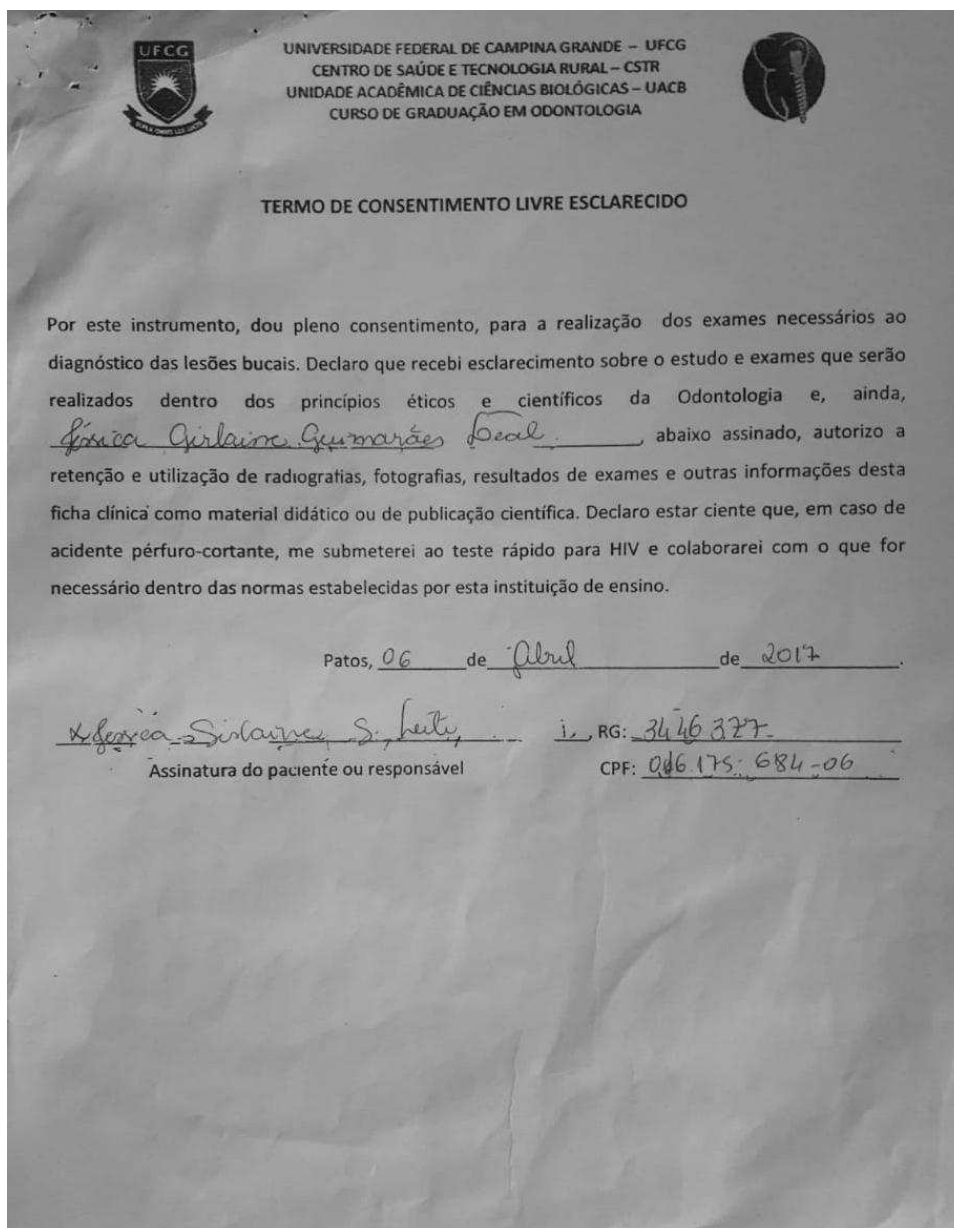 UFCG
UNIVERSIDADE FEDERAL DE CAMPINA GRANDE – UFCG
CENTRO DE SAÚDE E TECNOLOGIA RURAL – CSTR
UNIDADE ACADÊMICA DE CIÊNCIAS BIOLÓGICAS – UACB
CURSO DE GRADUAÇÃO EM ODONTOLOGIA
TERMO DE CONSENTIMENTO LIVRE ESCLARECIDO
Por este instrumento, dou pleno consentimento, para a realização dos exames necessários ao
diagnóstico das lesões bucais. Declaro que recebi esclarecimento sobre o estudo e exames que serão
realizados dentro dos princípios éticos e científicos da Odontologia e, ainda,
Jéssica Girlaine Guimarães Leal, abaixo assinado, autorizo a
retenção e utilização de radiografias, fotografias, resultados de exames e outras informações desta
ficha clínica como material didático ou de publicação científica. Declaro estar ciente que, em caso de
acidente pérfuro-cortante, me submeterei ao teste rápido para HIV e colaborarei com o que for
necessário dentro das normas estabelecidas por esta instituição de ensino.
Patos, 06 de Abril de 2017.
x Jessica S. , RG: 3446377
Assinatura do paciente ou responsável CPF: 175.684-06